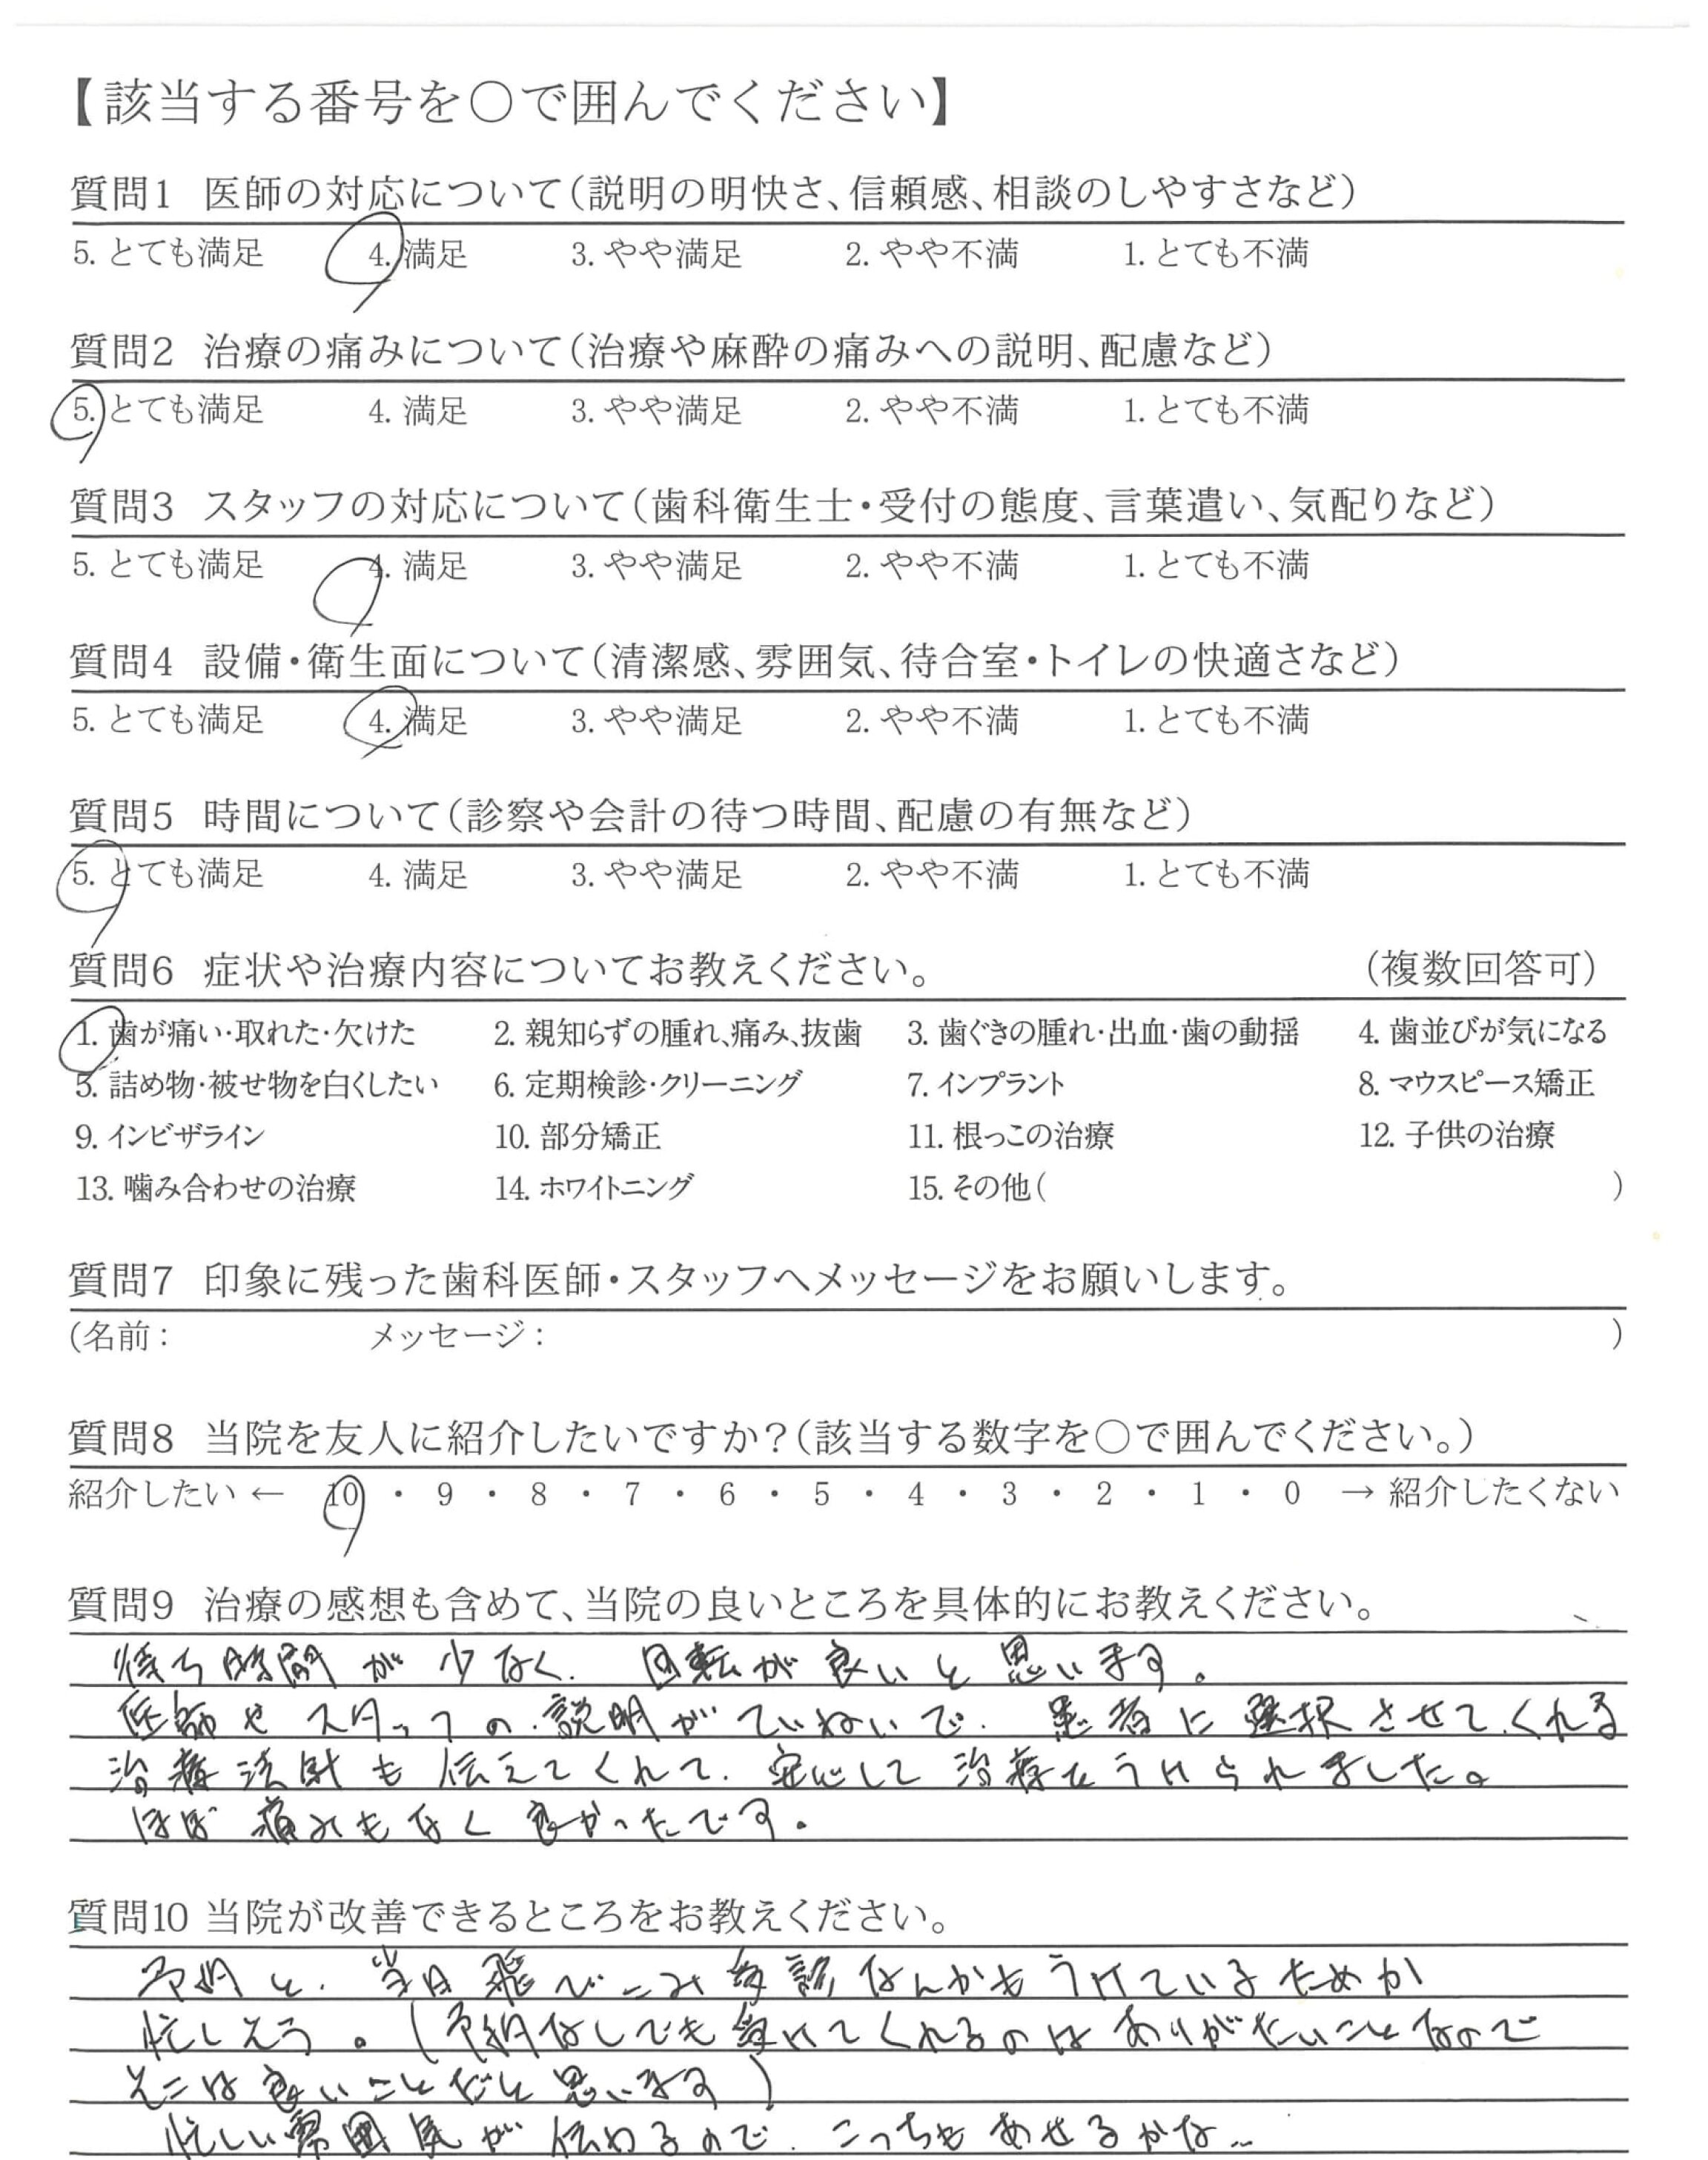 【該当する番号を○で囲んでください】
質問1 医師の対応について(説明の明快さ、信頼感、相談のしやすさなど)
5. とても満足 4. 満足 3. やや満足 2. やや不満 1. とても不満
質問2 治療の痛みについて(治療や麻酔の痛みへの説明、配慮など)
5. とても満足 4. 満足 3. やや満足 2. やや不満 1. とても不満
質問3 スタッフの対応について(歯科衛生士・受付の態度、言葉遣い、気配りなど)
5. とても満足 4. 満足 3. やや満足 2. やや不満 1. とても不満
質問4 設備・衛生面について(清潔感、雰囲気、待合室・トイレの快適さなど)
5. とても満足 4. 満足 3. やや満足 2. やや不満 1. とても不満
質問5 時間について(診察や会計の待つ時間、配慮の有無など)
5. とても満足 4. 満足 3. やや満足 2. やや不満 1. とても不満
質問6 症状や治療内容についてお教えください。 (複数回答可)
1. 歯が痛い・取れた・欠けた 2. 親知らずの腫れ、痛み、抜歯 3. 歯ぐきの腫れ・出血・歯の動揺 4. 歯並びが気になる
5. 詰め物・被せ物を白くしたい 6. 定期検診・クリーニング 7. インプラント 8. マウスピース矯正
9. インビザライン 10. 部分矯正 11. 根っこの治療 12. 子供の治療
13. 噛み合わせの治療 14. ホワイトニング 15. その他( )
質問7 印象に残った歯科医師・スタッフへメッセージをお願いします。
(名前: メッセージ: )
質問8 当院を友人に紹介したいですか?(該当する数字を○で囲んでください。)
紹介したい ← 10 ・ 9 ・ 8 ・ 7 ・ 6 ・ 5 ・ 4 ・ 3 ・ 2 ・ 1 ・ 0 → 紹介したくない
質問9 治療の感想も含めて、当院の良いところを具体的にお教えください。
待ち時間が少なく、回転が良いと思います。
医師やスタッフの説明がていねいで、患者に選択させてくれる
治療法も伝えてくれて、安心して治療をうけられました。
ほぼ痛みもなく良かったです。
質問10 当院が改善できるところをお教えください。
予約と、当日飛びこみ なんかもうけているためか
忙しそう。(予約なしでも受けてくれるのはありがたいことなので
そこは良いことだと思います)
忙しい雰囲気が伝わるので、こっちもあせるかな…